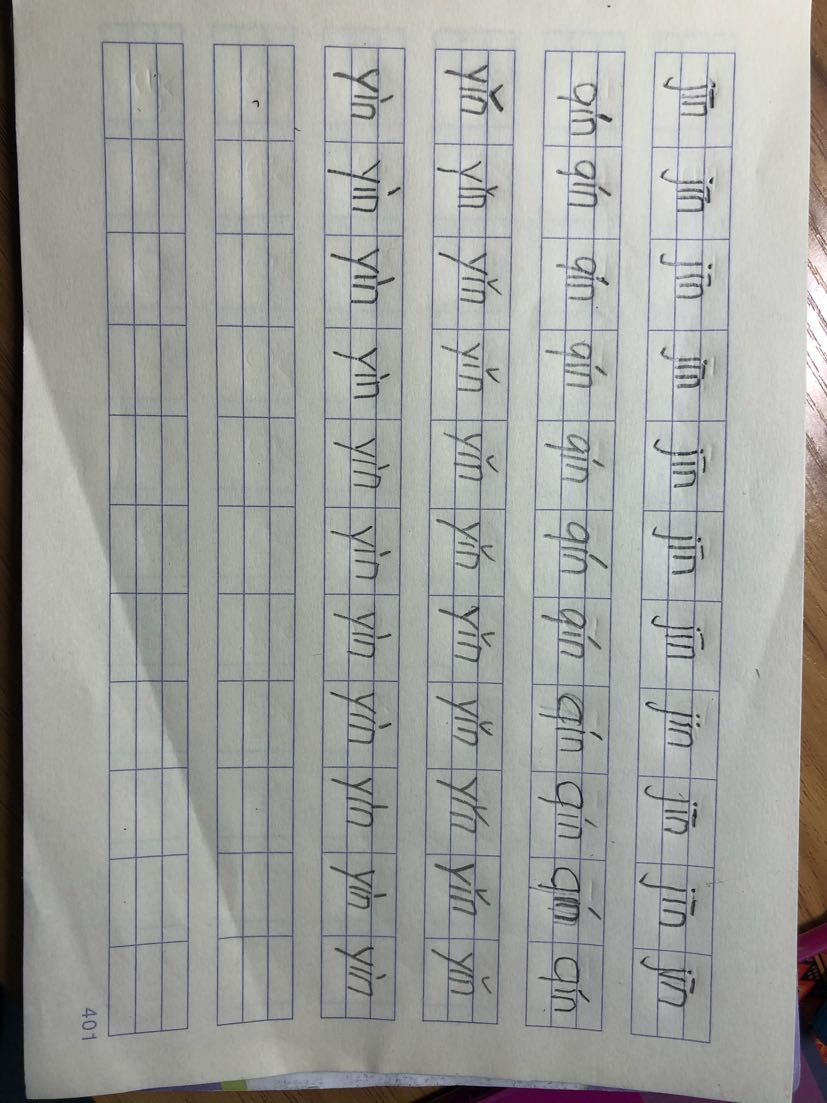 jīn jīn jīn jīn jīn jīn jīn jīn jīn jīn jīn
qín qín qín qín qín qín qín qín qín qín qín
yǐn yǐn yǐn yǐn yǐn yǐn yǐn yǐn yǐn yǐn yǐn
yìn yìn yìn yìn yìn yìn yìn yìn yìn yìn yìn
401